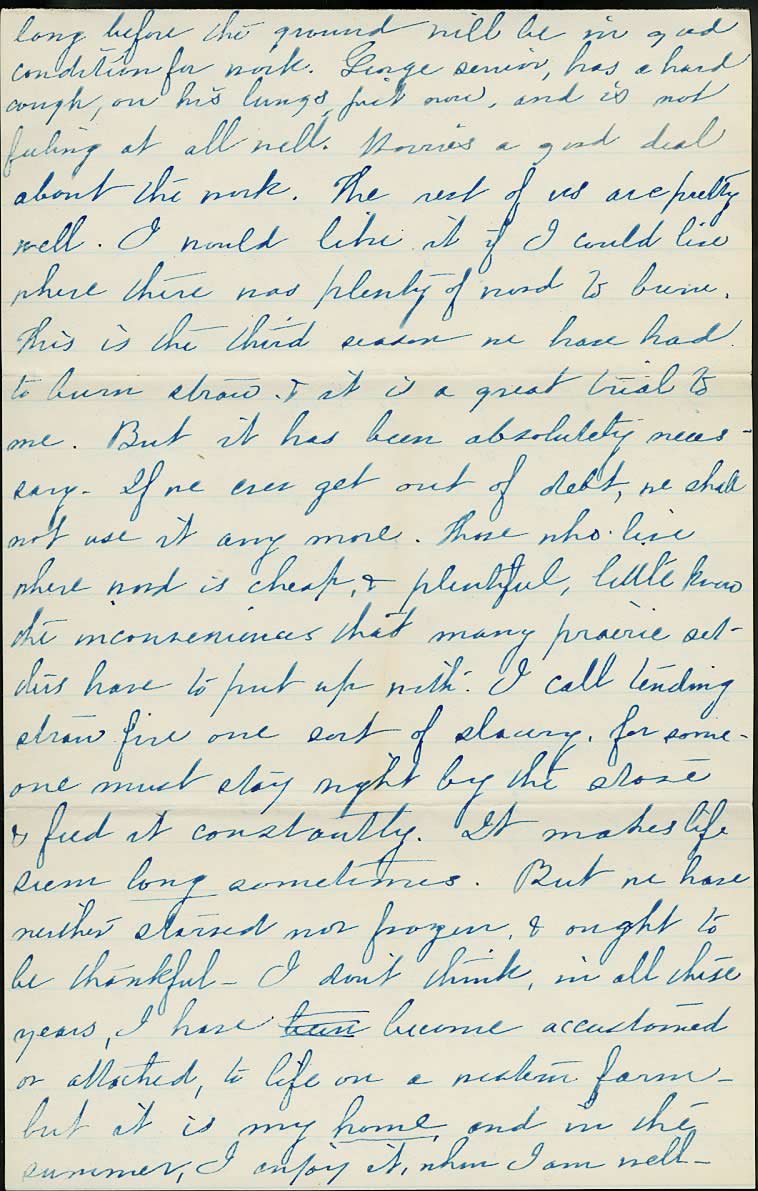 long before the ground will be in good
condition for work. George senior, has a hard
cough, on his lungs, just now, and is not
feeling at all well. Worries a good deal
about the work. The rest of us are pretty
well. I would like it if I could live
where there was plenty of wood to burn.
This is the third season we have had
to burn straw. & it is a great trial to
me. But it has been absolutely neces-
sary - If we ever get out of debt, we shall
not use it any more. Those who live
where wood is cheap, & plentiful, little know
the inconveniences that many prairie set-
tlers have to put up with. I call tending
straw fire one sort of slavery, for some-
one must stay right by the stove
& feed it constantly. It makes life
seem long sometimes. But we have
neither starved nor frozen, & ought to
be thankful - I don't think, in all these
years, I have been become accustomed
or attached, to life on a western farm -
but it is my home, and in the
summer, I enjoy it, when I am well -